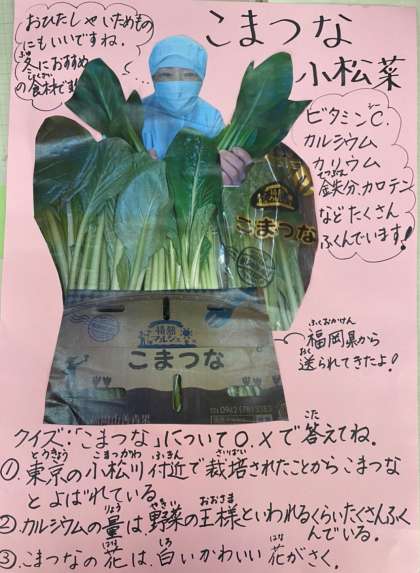 こまつな
小松菜
おひたしやいためもの
にもいいですね。
冬におすすめ
の食材です!
ビタミンC.
カルシウム
カリウム
鉄分.カロテン
などたくさん
ふくんでいます!
こまつな
マルシェ
こまつな
福岡県から
送られてきたよ!
クイズ:「こまつな」について○.×で答えてね。
①.東京の小松川付近で栽培されたことからこまつな
とよばれている。
②.カルシウムの量は野菜の王様といわれるくらいたくさんふく
んでいる。
③こまつなの花は.白いかわいい花がさく。